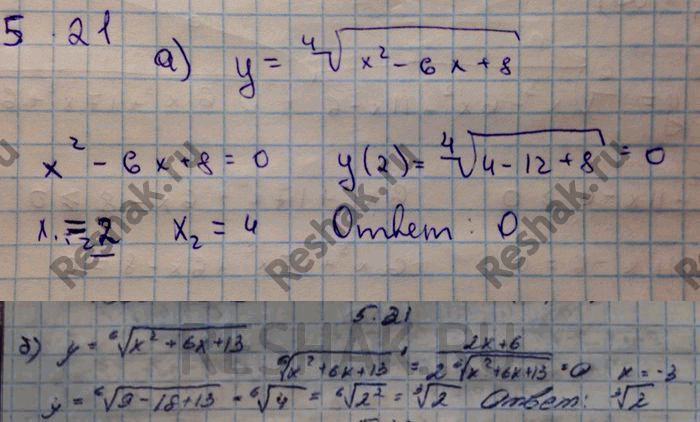 5.21
а) y = ⁴√(x² - 6x + 8)
x² - 6x + 8 = 0 y(2) = ⁴√(4 - 12 + 8) = 0
x₁ = 2 x₂ = 4 Ответ: 0
Reshak.ru
5.21
б) y = ⁶√(x² + 6x + 13)
⁶√(x² + 6x + 13)' = (2x + 6)/(2 ⁶√(x² + 6x + 13)) = 0 x = -3
y = ⁶√(9 - 18 + 13) = ⁶√4 = ⁶√2² = ³√2 Ответ: ³√2